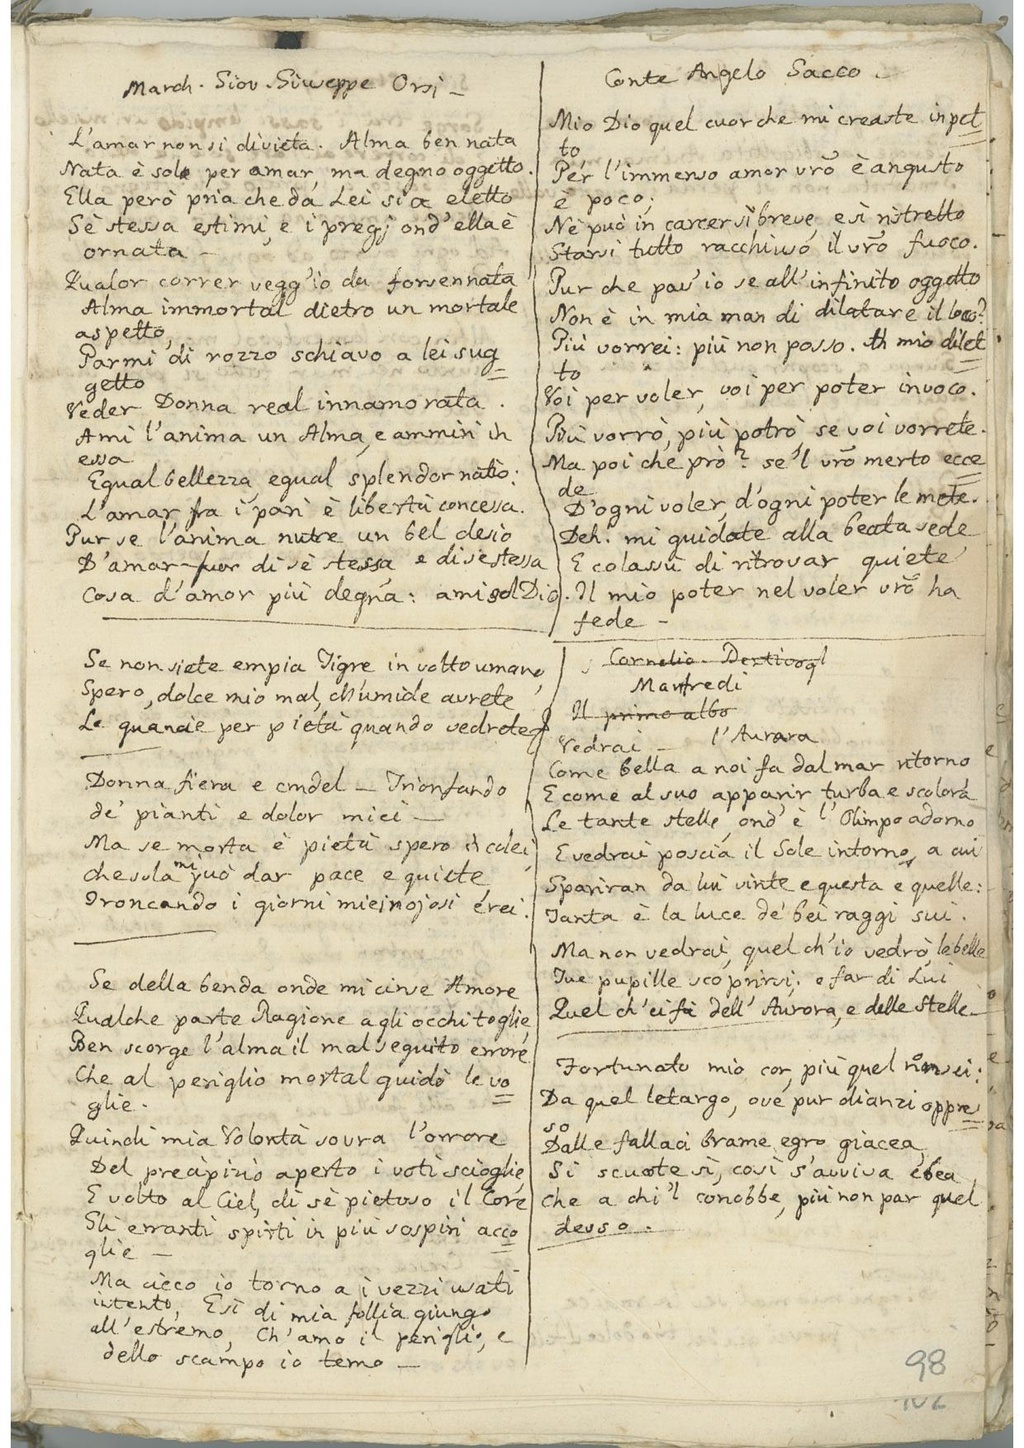 March. Giov. Giuseppe Orsi –
L'amar non si divieta. Alma ben nata
Nata è sole per amar, ma degno oggetto.
Ella però pria che da Lei sia eletto
Sè stessa estimi, e i pregj ond'ella è
ornata –
Qualor correr vegg'io da forsennata
Alma immortal dietro un mortale
aspetto,
Parmi di rozzo schiavo a lei sug
getto
Veder Donna real innamorata.
Ami l'anima un Alma, e ammiri in
essa
Egual bellezza, egual splendor natio:
L'amar fra i pari è libertà concessa.
Pur se l'anima nutre un bel desio
D'amar fuor di sè stessa e di se stessa
Cosa d'amor più degna: ami sol Dio.
Se non siete empia Tigre in volto umano,
Spero, dolce mio mal, ch'umide avrete
Le guancie per pietà quando vedrete
Donna fiera e crudel – Trionfando
de' pianti e dolor miei –
Ma se morta è pietà spero in colei,
che sola mi può dar pace e quiete,
Troncando i giorni miei nojosi e rei.
Se della benda onde mi cinse Amore
Qualche parte Ragione agli occhi toglie,
Ben scorge l'alma il mal seguito errore
Che al periglio mortal guidò le vo
glie.
Quindi mia Volontà sovra l'orrore
Del precipizio aperto i voti scioglie,
E volto al Ciel, di sè pietoso il Core
Gli erranti spirti in più sospiri acco
glie –
Ma cieco io torno a i vezzi usati
intento, E sì di mia follia giungo
all'estremo, Ch'amo il periglio, e
dello scampo io temo –
Conte Angelo Sacco –
Mio Dio quel cuor che mi creaste in pet
to
Per l'immenso amor vrõ è angusto
è poco;
Nè può in carcer sì breve, e sì ristretto
Starsi tutto racchiuso il vrõ fuoco.
Pur che poss'io se all'infinito oggetto
Non è in mia man di dilatare il loco?
Più vorrei: più non posso. In mio dilet
to
Voi per voler, voi per poter invoco.
Più vorrò, più potrò, se voi vorrete.
Ma poi che prò? se 'l vrõ merto ecce
de
D'ogni voler, d'ogni poter le mete.
Deh. mi guidate alla beata sede
E colassù di ritrovar quiete
Il mio poter nel voler vrõ ha
fede –
Cornelio Bentivogl
Manfredi
Il primo albo
Vedrai – l'Aurora
Come bella a noi fa dal mar ritorno
E come al suo apparir turba e scolora
Le tante stelle, ond'è l'Olimpo adorno
E vedrai poscia il Sole intorno, a cui
Spariran da lui vinte e questa e quelle:
Tanta è la luce de' bei raggi sui.
Ma non vedrai, quel ch'io vedrò le belle
Tue pupille scoprirsi, e far di Lui
Quel ch'ei fà dell'Aurora, e delle stelle –
Fortunato mio cor, più quel non sei:
Da quel letargo, ove pur dianzi oppres
so
Dalle fallaci brame egro giacea,
Si scuote sì, così s'avviva e bea,
che a chi 'l conobbe, più non par quel
desso.
98
102